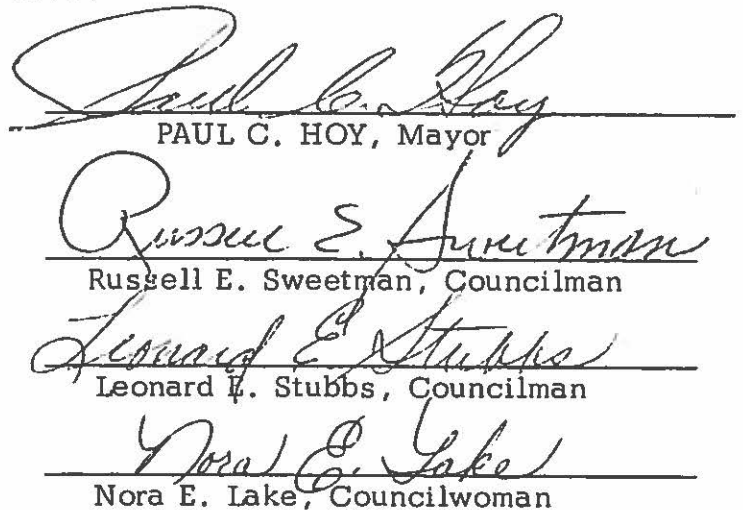 Paul C. Hoy
PAUL C. HOY, Mayor
Russell E. Sweetman
Russell E. Sweetman, Councilman
Leonard E Stubbs
Leonard E. Stubbs, Councilman
Nora E. Lake
Nora E. Lake, Councilwoman